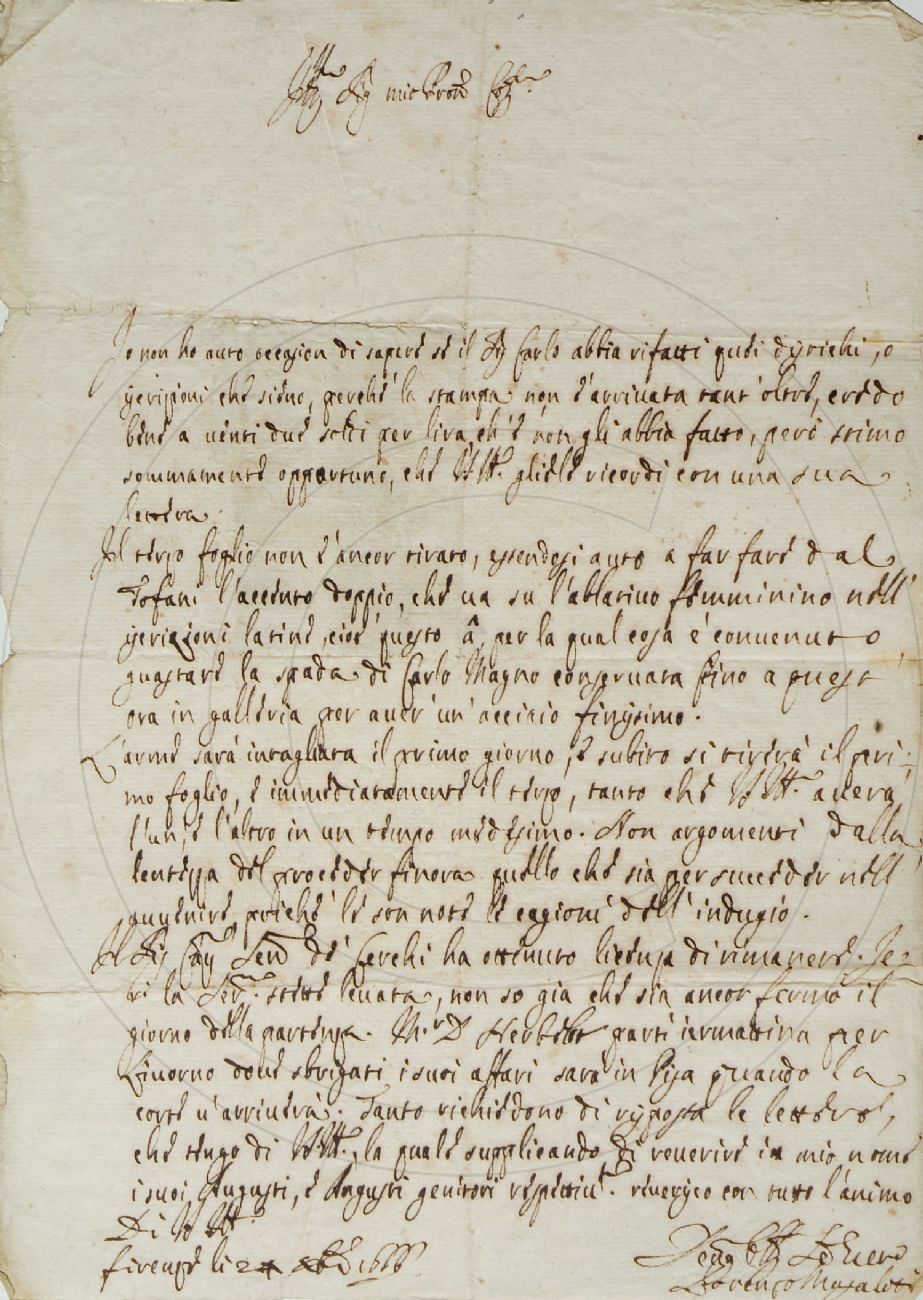 Sig mio Pron
Io non ho auto occasion di sapere se il Sig Carlo abbia rifatti quei dijrichi, o
che sieno, perche la stampa non è arrivata tant' oltre, credo
bene a venti due soldi per lira, ch'è non gli abbia fatto, però stimo
sommamente opportuno, che VS Ill. gliele ricordi con una sua
lettera.
Il terzo foglio non è ancor tirato, essendosi auto a far fare dal
Tofani l'accento doppio, che va su l'ablativo femminino nell'
iscrizioni latine, cioè questo â, per la qual cosa è convenuto
guastare la spada di Carlo Magno conservata fino a quest'
ora in galleria per aver un' acciaio finissimo.
L'arme sarà intagliata il primo giorno, e subito si tirerà il pri-
mo foglio, e immediatamente il terzo, tanto che VS Ill. averà
l'un, e l'altro in un tempo medesimo. Non argomenti dalla
lentezza del proceder finora quello che sia per succeder nell'
avvenire, poiché le son note le cagioni dell' indugio.
Il Sig Cav de' Cerchi ha ottenuto licenza di rimanere. Je-
ri la Ser.ma stette levata, non so gia che sia ancor fermo il
giorno della partenza. M.r D Herbelot partì iermattina per
Livorno dove sbrigati i suoi affari sarà in Pisa quando la
corte v'arriverà. Tanto richiedono di risposta le lettere,
che tengo di VS Ill., la quale supplicando di reverire in mio nome
i suoi Augusti, e Angusti genitori riverisco con tutto l'animo
Di VS Ill.
Firenze li 1666
Lorenzo Magalotti